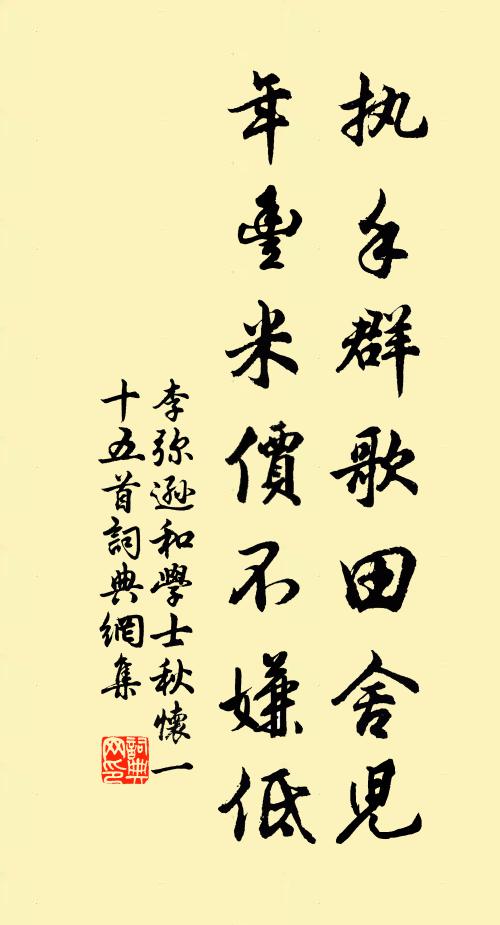 执手群歌田舍兒
年豐米價不嫌低
李弥遜和學士秋懷一
十五首詞典網集
詞典
网印